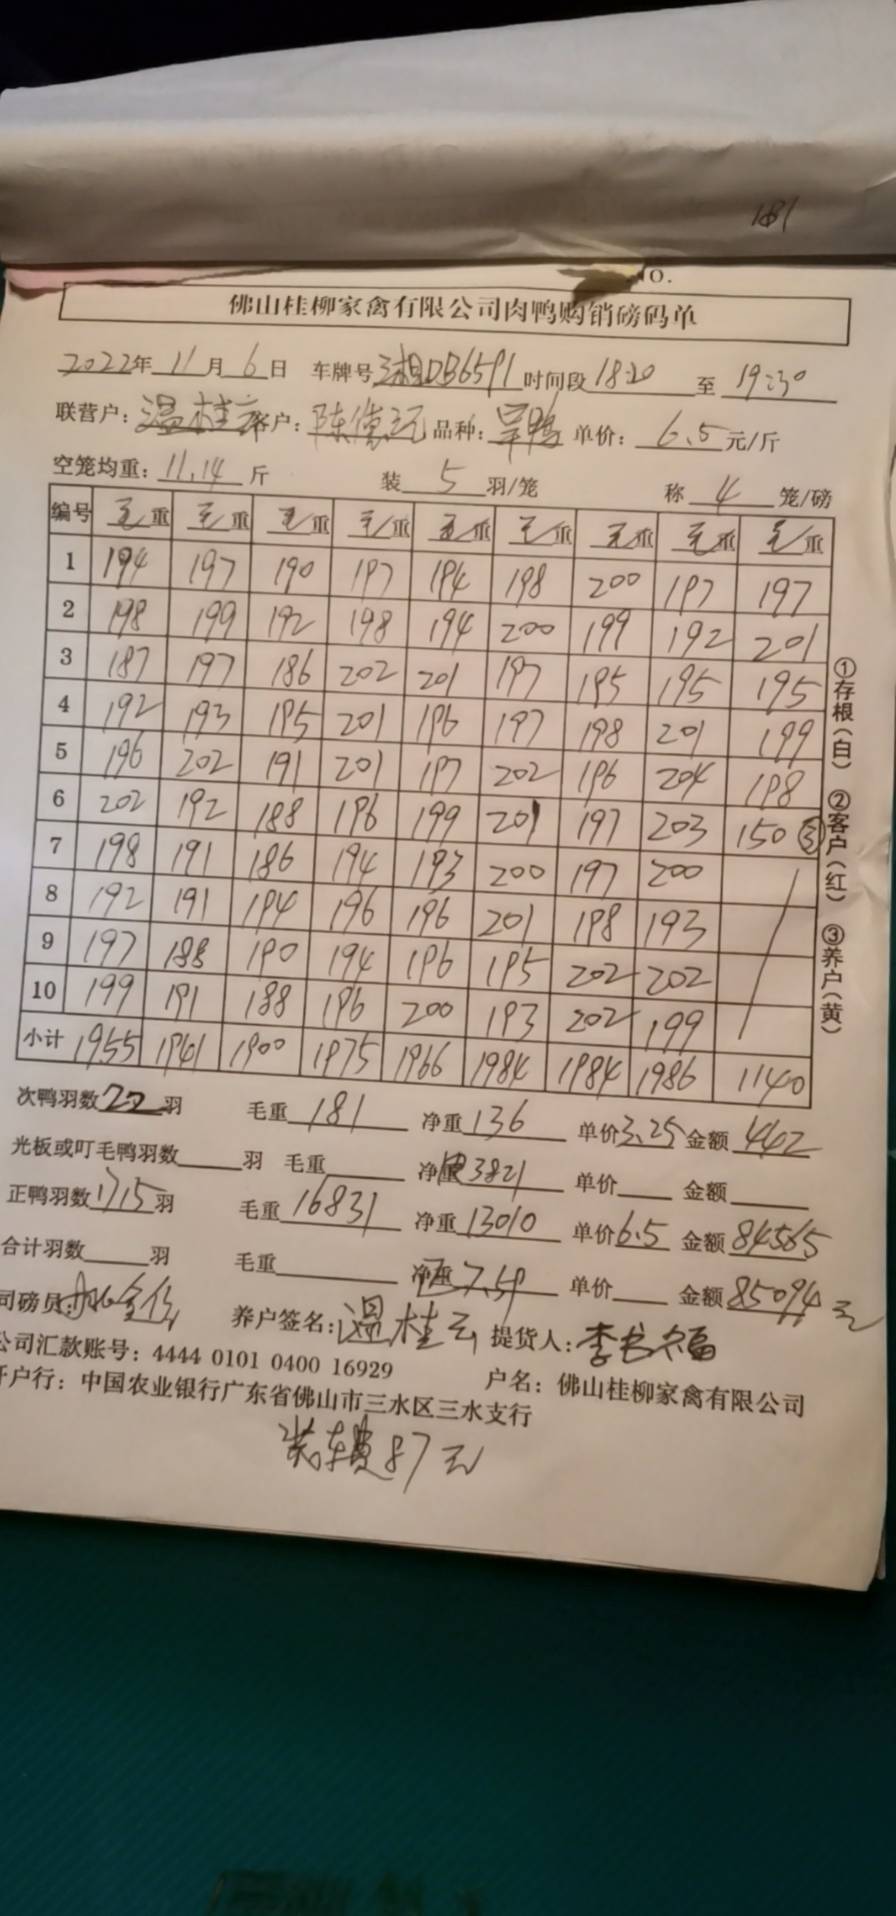 181
NO.
佛山桂柳家禽有限公司肉鸭购销磅码单
2022年 11月 6日 车牌号 湘DB6591 时间段 18:20 至 19:30
联营户: 温桂云 客户: 陈德元 品种: 单价: 6.5 元/斤
空笼均重: 11.14 斤 装 5 羽/笼 称 4 笼/磅
编号 毛重 毛重 毛重 毛重 毛重 毛重 毛重 毛重 毛重
1 194 197 190 197 194 198 200 197 197
2 198 199 192 198 194 200 199 192 201
3 187 197 186 202 201 197 195 195 195
4 192 193 195 201 196 197 198 201 199
5 196 202 191 201 197 202 196 204 198
6 202 192 188 196 199 201 197 203 150 ③
7 198 191 186 194 193 200 197 200
8 192 191 194 196 196 201 198 193
9 197 188 190 194 196 195 202 202
10 199 191 188 196 200 193 202 199
小计 1955 1941 1900 1975 1966 1984 1984 1986 1140
①存根(白) ②客户(红) ③养户(黄)
次鸭羽数 22 羽 毛重 181 净重 136 单价 3.25 金额 442
光板或叮毛鸭羽数 羽 毛重 净重 3821 单价 金额
正鸭羽数 1715 羽 毛重 16831 净重 13010 单价 6.5 金额 84565
合计羽数 羽 毛重 7.59 单价 金额 85094 元
司磅员: 养户签名: 温桂云 提货人: 李福
公司汇款账号: 4444 0101 0400 16929 户名: 佛山桂柳家禽有限公司
开户行: 中国农业银行广东省佛山市三水区三水支行
装车费87元